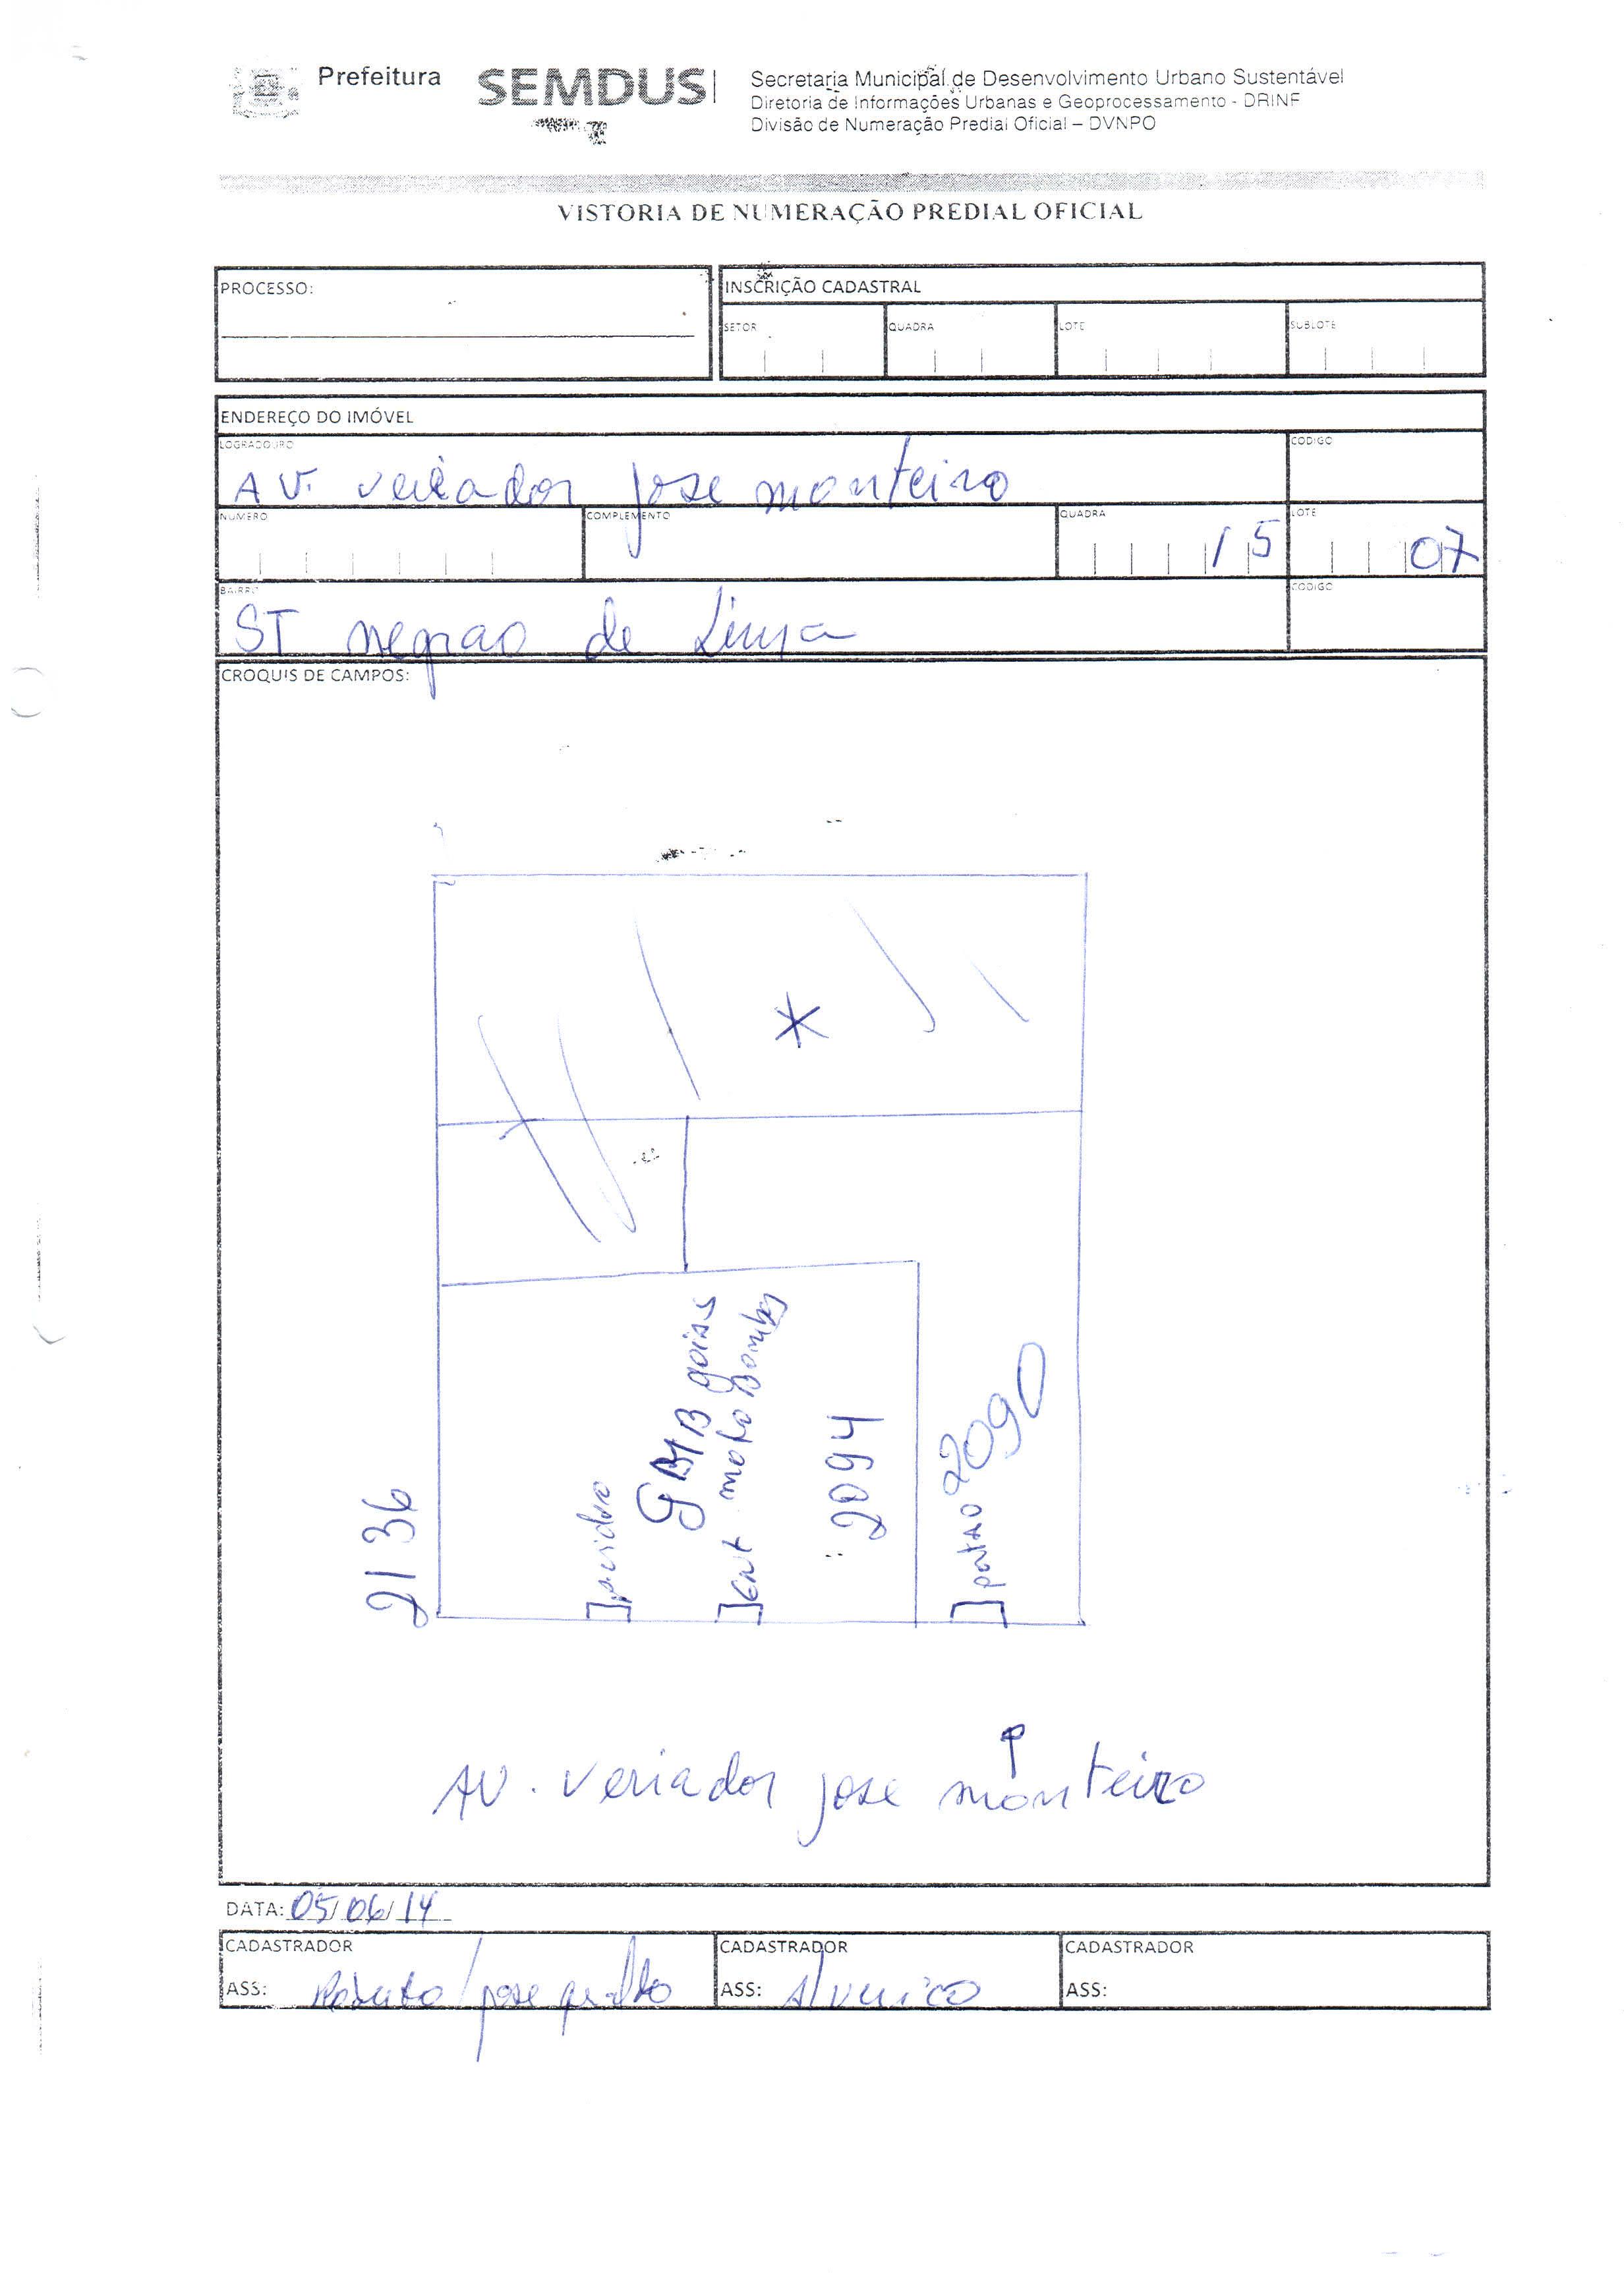 Prefeitura
SEMDUS
Secretaria Municipal de Desenvolvimento Urbano Sustentável
Diretoria de Informações Urbanas e Geoprocessamento - DRINF
Divisão de Numeração Predial Oficial – DVNPO
VISTORIA DE NUMERAÇÃO PREDIAL OFICIAL
PROCESSO:
INSCRIÇÃO CADASTRAL
SETOR QUADRA LOTE SUBLOTE
ENDEREÇO DO IMÓVEL
LOGRADOURO CODIGO
AV. veriador jose monteiro
NUMERO COMPLEMENTO QUADRA LOTE
15 07
BAIRRO CODIGO
ST negrao de Lima
CROQUIS DE CAMPOS:
2136
vidro
GMB goias
Ent moto Bombas
2094
portAO 2090
AV. veriador jose monteiro
DATA: 05/06/14
CADASTRADOR CADASTRADOR CADASTRADOR
ASS: jose ASS: ASS: